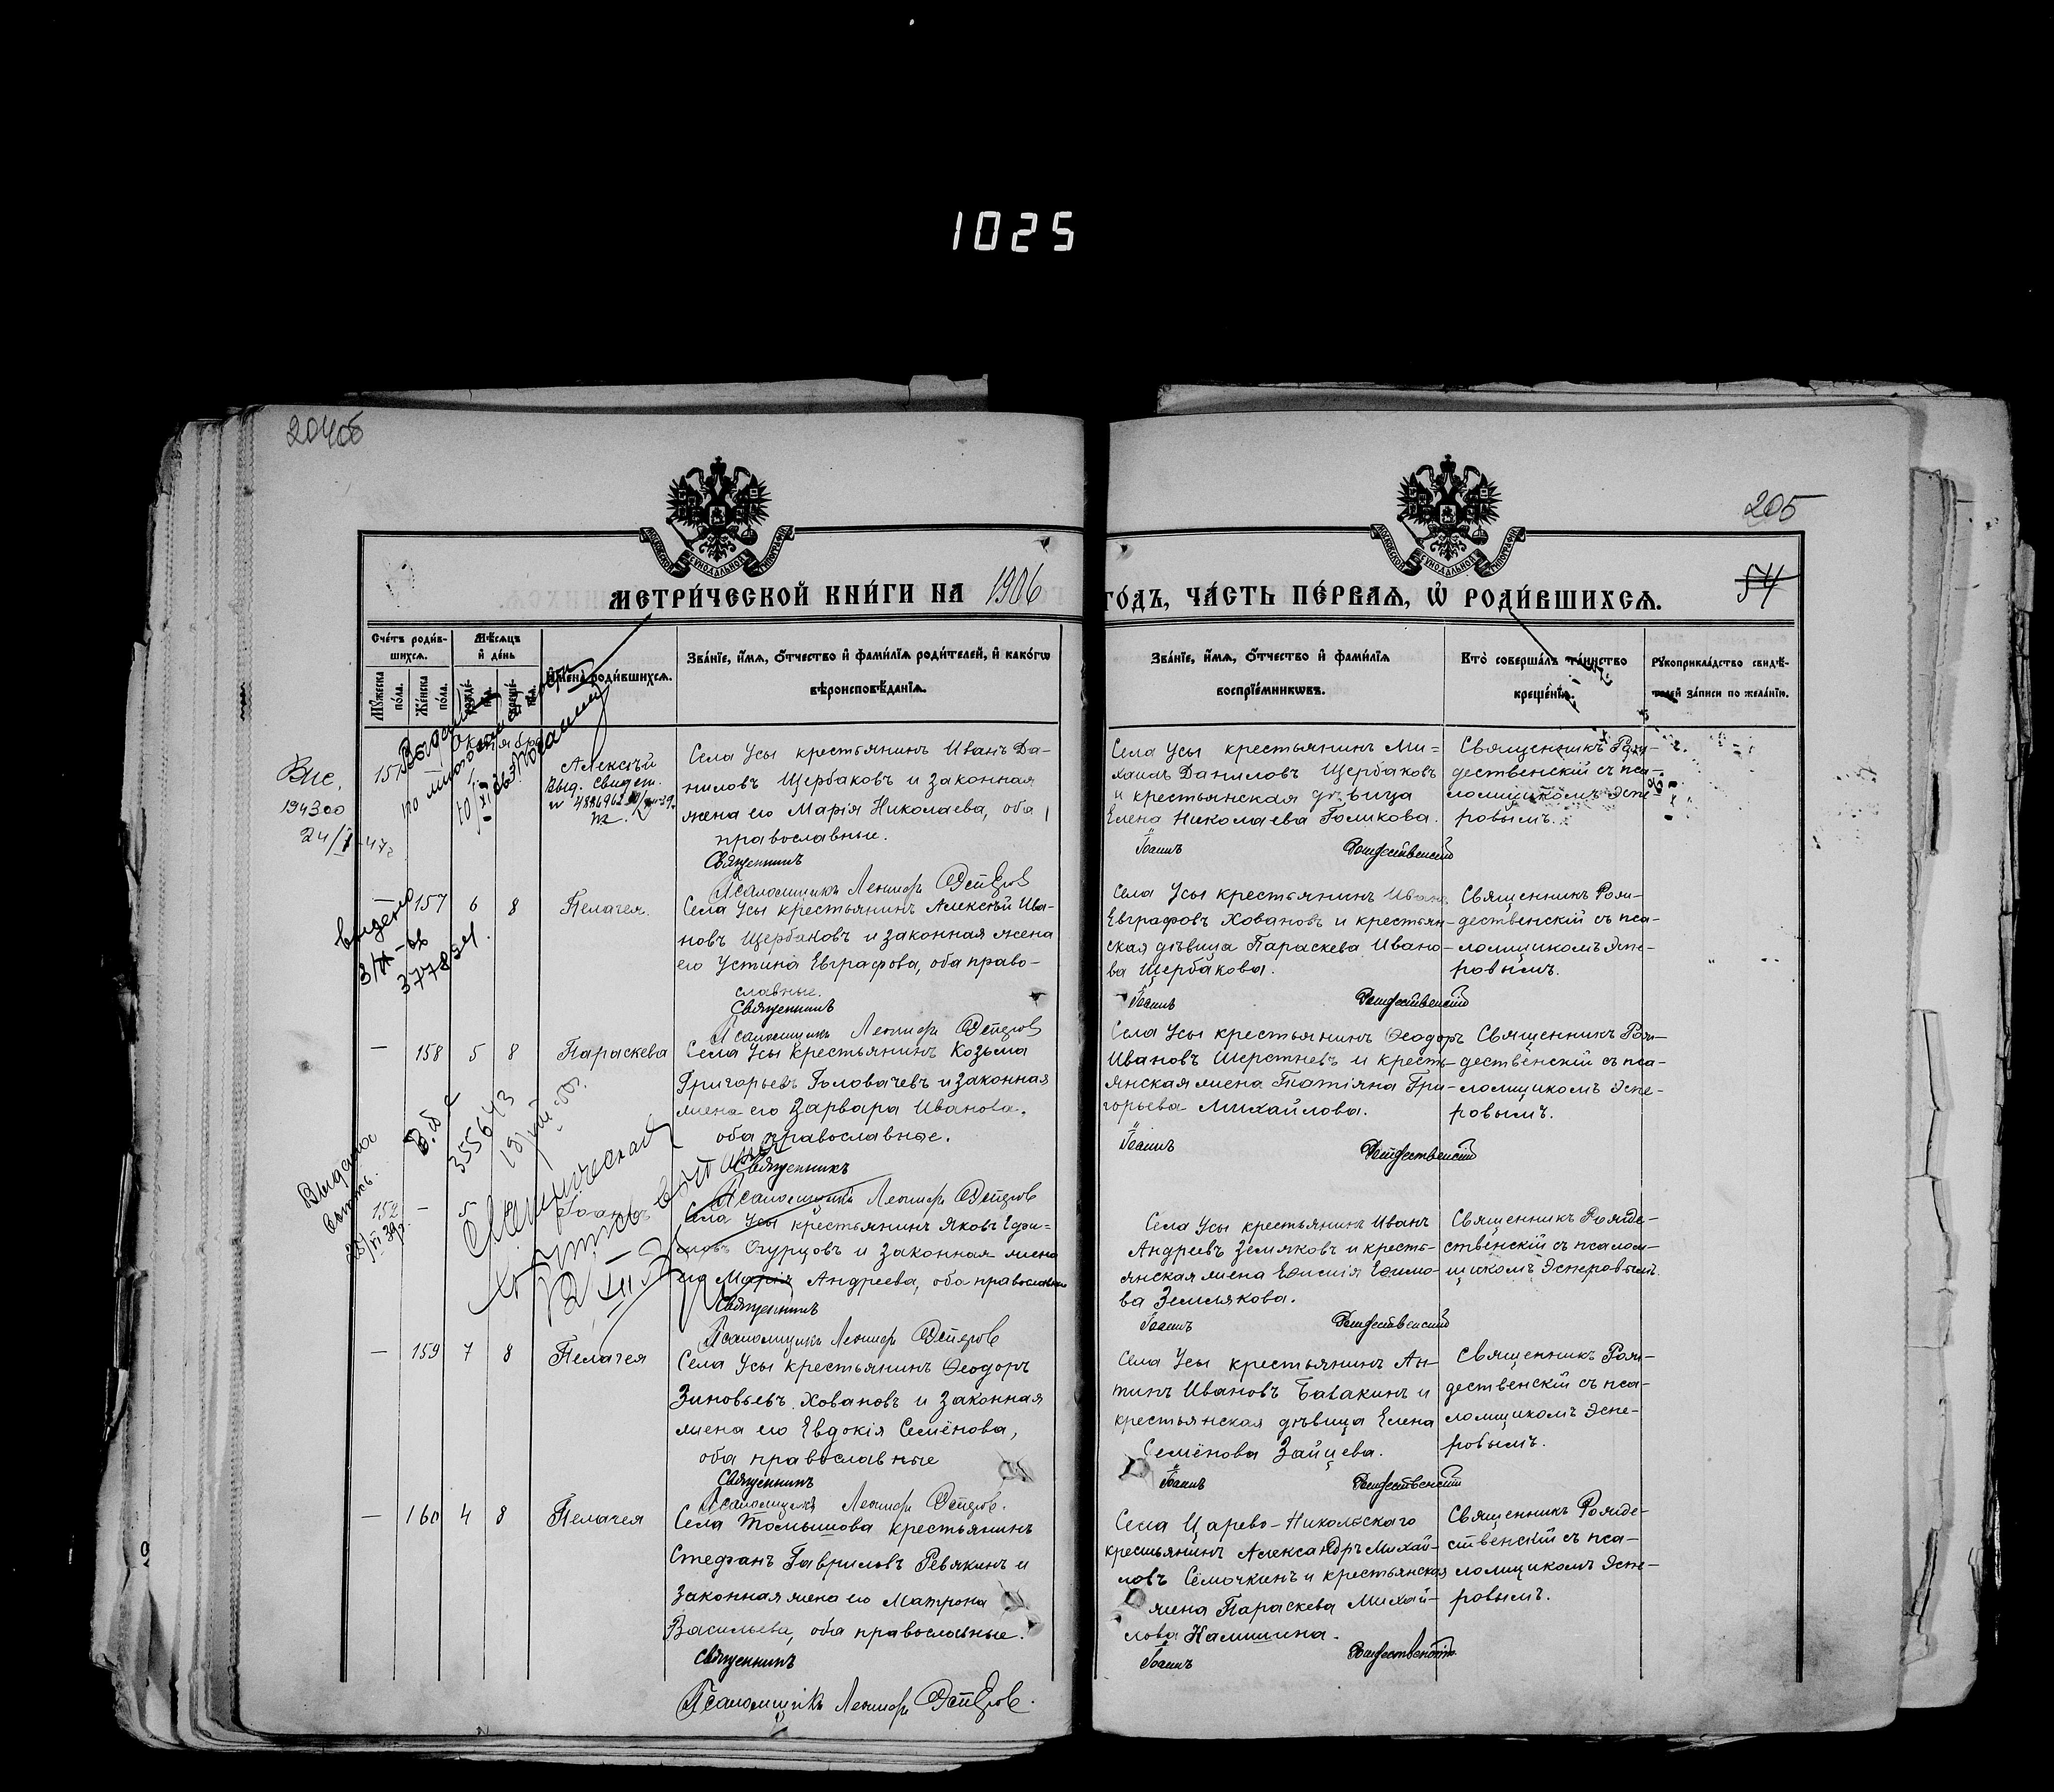 1025
205
МОСКОВСКОЙ СѴНОДАЛЬНОЙ ТИПОГРАФІИ
МОСКОВСКОЙ СѴНОДАЛЬНОЙ ТИПОГРАФІИ
54
МЕТРИ́ЧЕСКОЙ КНИ́ГИ НА 1906 ГО́ДЪ, ЧА́СТЬ ПЕ́РВАѦ, Ѡ҆ РОДИ́ВШИХСѦ.
Сче́тъ роди́в-
шихсѧ.
Мꙋ́жеска по́ла.
Же́нска по́ла.
Мѣ́сѧцъ и҆ де́нь
рожде́-
нїѧ.
креще́-
нїѧ.
И҆мена̀ роди́вшихсѧ.
Зва́нїе, и҆́мѧ, ѻ҆́тчество и҆ фами́лїѧ роди́телей, и҆ како́гѡ
вѣроисповѣ́данїѧ.
Зва́нїе, и҆́мѧ, ѻ҆́тчество и҆ фами́лїѧ
воспрїе́мникѡвъ.
Кто̀ соверша́лъ та́инство
креще́нїѧ.
Рꙋкоприкла́дство свидѣ́-
телей за́писи по жела́нїю.
Октября
Алексѣй
Выд. свидет.
194300
Села Усы крестьянинъ Иванъ Да-
ниловъ Щербаковъ и законная
жена его Марія Николаева, оба
православные.
Священникъ
Псаломщикъ Леонидъ Эсперовъ
Села Усы крестьянинъ Ми=
хаилъ Даниловъ Щербаковъ
и крестьянская дѣвица
Елена Николаева Голикова.
Іоаннъ Рождественскій
Священникъ Рож-
дественскій съ пса-
ломщикомъ Эспе-
ровымъ.
выдано
377834.
157 6 8 Пелагея.
Села Усы крестьянинъ Алексѣй Ива-
новъ Щербаковъ и законная жена
его Устина Евграфова, оба право-
славные.
Священникъ
Псаломщикъ Леонидъ Эсперовъ
Села Усы крестьянинъ Иванъ
Евграфовъ Ховановъ и крестьян-
ская дѣвица Параскева Ивано-
ва Щербакова.
Іоаннъ Рождественскій
Священникъ Рож-
дественскій съ пса-
ломщикомъ Эспе-
ровымъ.
— 158 5 8 Параскева
Села Усы крестьянинъ Козьма
Григорьевъ Головачевъ и законная
жена его Варвара Иванова,
оба православные.
Священникъ
Псаломщикъ Леонидъ Эсперовъ
Села Усы крестьянинъ Ѳеодоръ
Ивановъ Шерстневъ и кресть-
янская жена Татіяна Гри-
горьева Михайлова.
Іоаннъ Рождественскій
Священникъ Рож-
дественскій съ пса-
ломщикомъ Эспе-
ровымъ.
355643
Выдано
152 — 5 Іоаннъ
Села Усы крестьянинъ Яковъ Ефи-
мовъ Огурцовъ и законная жена
его Марія Андреева, оба православные
Священникъ
Псаломщикъ Леонидъ Эсперовъ
Села Усы крестьянинъ Иванъ
Андреевъ Земляковъ и кресть-
янская жена Ефимія Ефимо-
ва Землякова.
Іоаннъ Рождественскій
Священникъ Рожде-
ственскій съ псалом-
щикомъ Эсперовымъ.
— 159 7 8 Пелагея
Села Усы крестьянинъ Ѳеодоръ
Зиновьевъ Ховановъ и законная
жена его Евдокія Семёнова,
оба православные
Священникъ
Псаломщикъ Леонидъ Эсперовъ.
Села Усы крестьянинъ Ан-
типъ Ивановъ Батакинъ и
крестьянская дѣвица Елена
Семёнова Зайцева.
Іоаннъ Рождественскій
Священникъ Рож-
дественскій съ пса-
ломщикомъ Эспе-
ровымъ.
— 160 4 8 Пелагея
Села Томышова крестьянинъ
Стефанъ Гавриловъ Ревякинъ и
законная жена его Матрона
Васильева, оба православные.
Священникъ
Псаломщикъ Леонидъ Эсперовъ.
Села Царево-Никольскаго
крестьянинъ Александръ Михай-
ловъ Сёмочкинъ и крестьянская
жена Параскева Михай-
лова Камшина.
Іоаннъ Рождественскій
Священникъ Рожде-
ственскій съ пса-
ломщикомъ Эспе-
ровымъ.